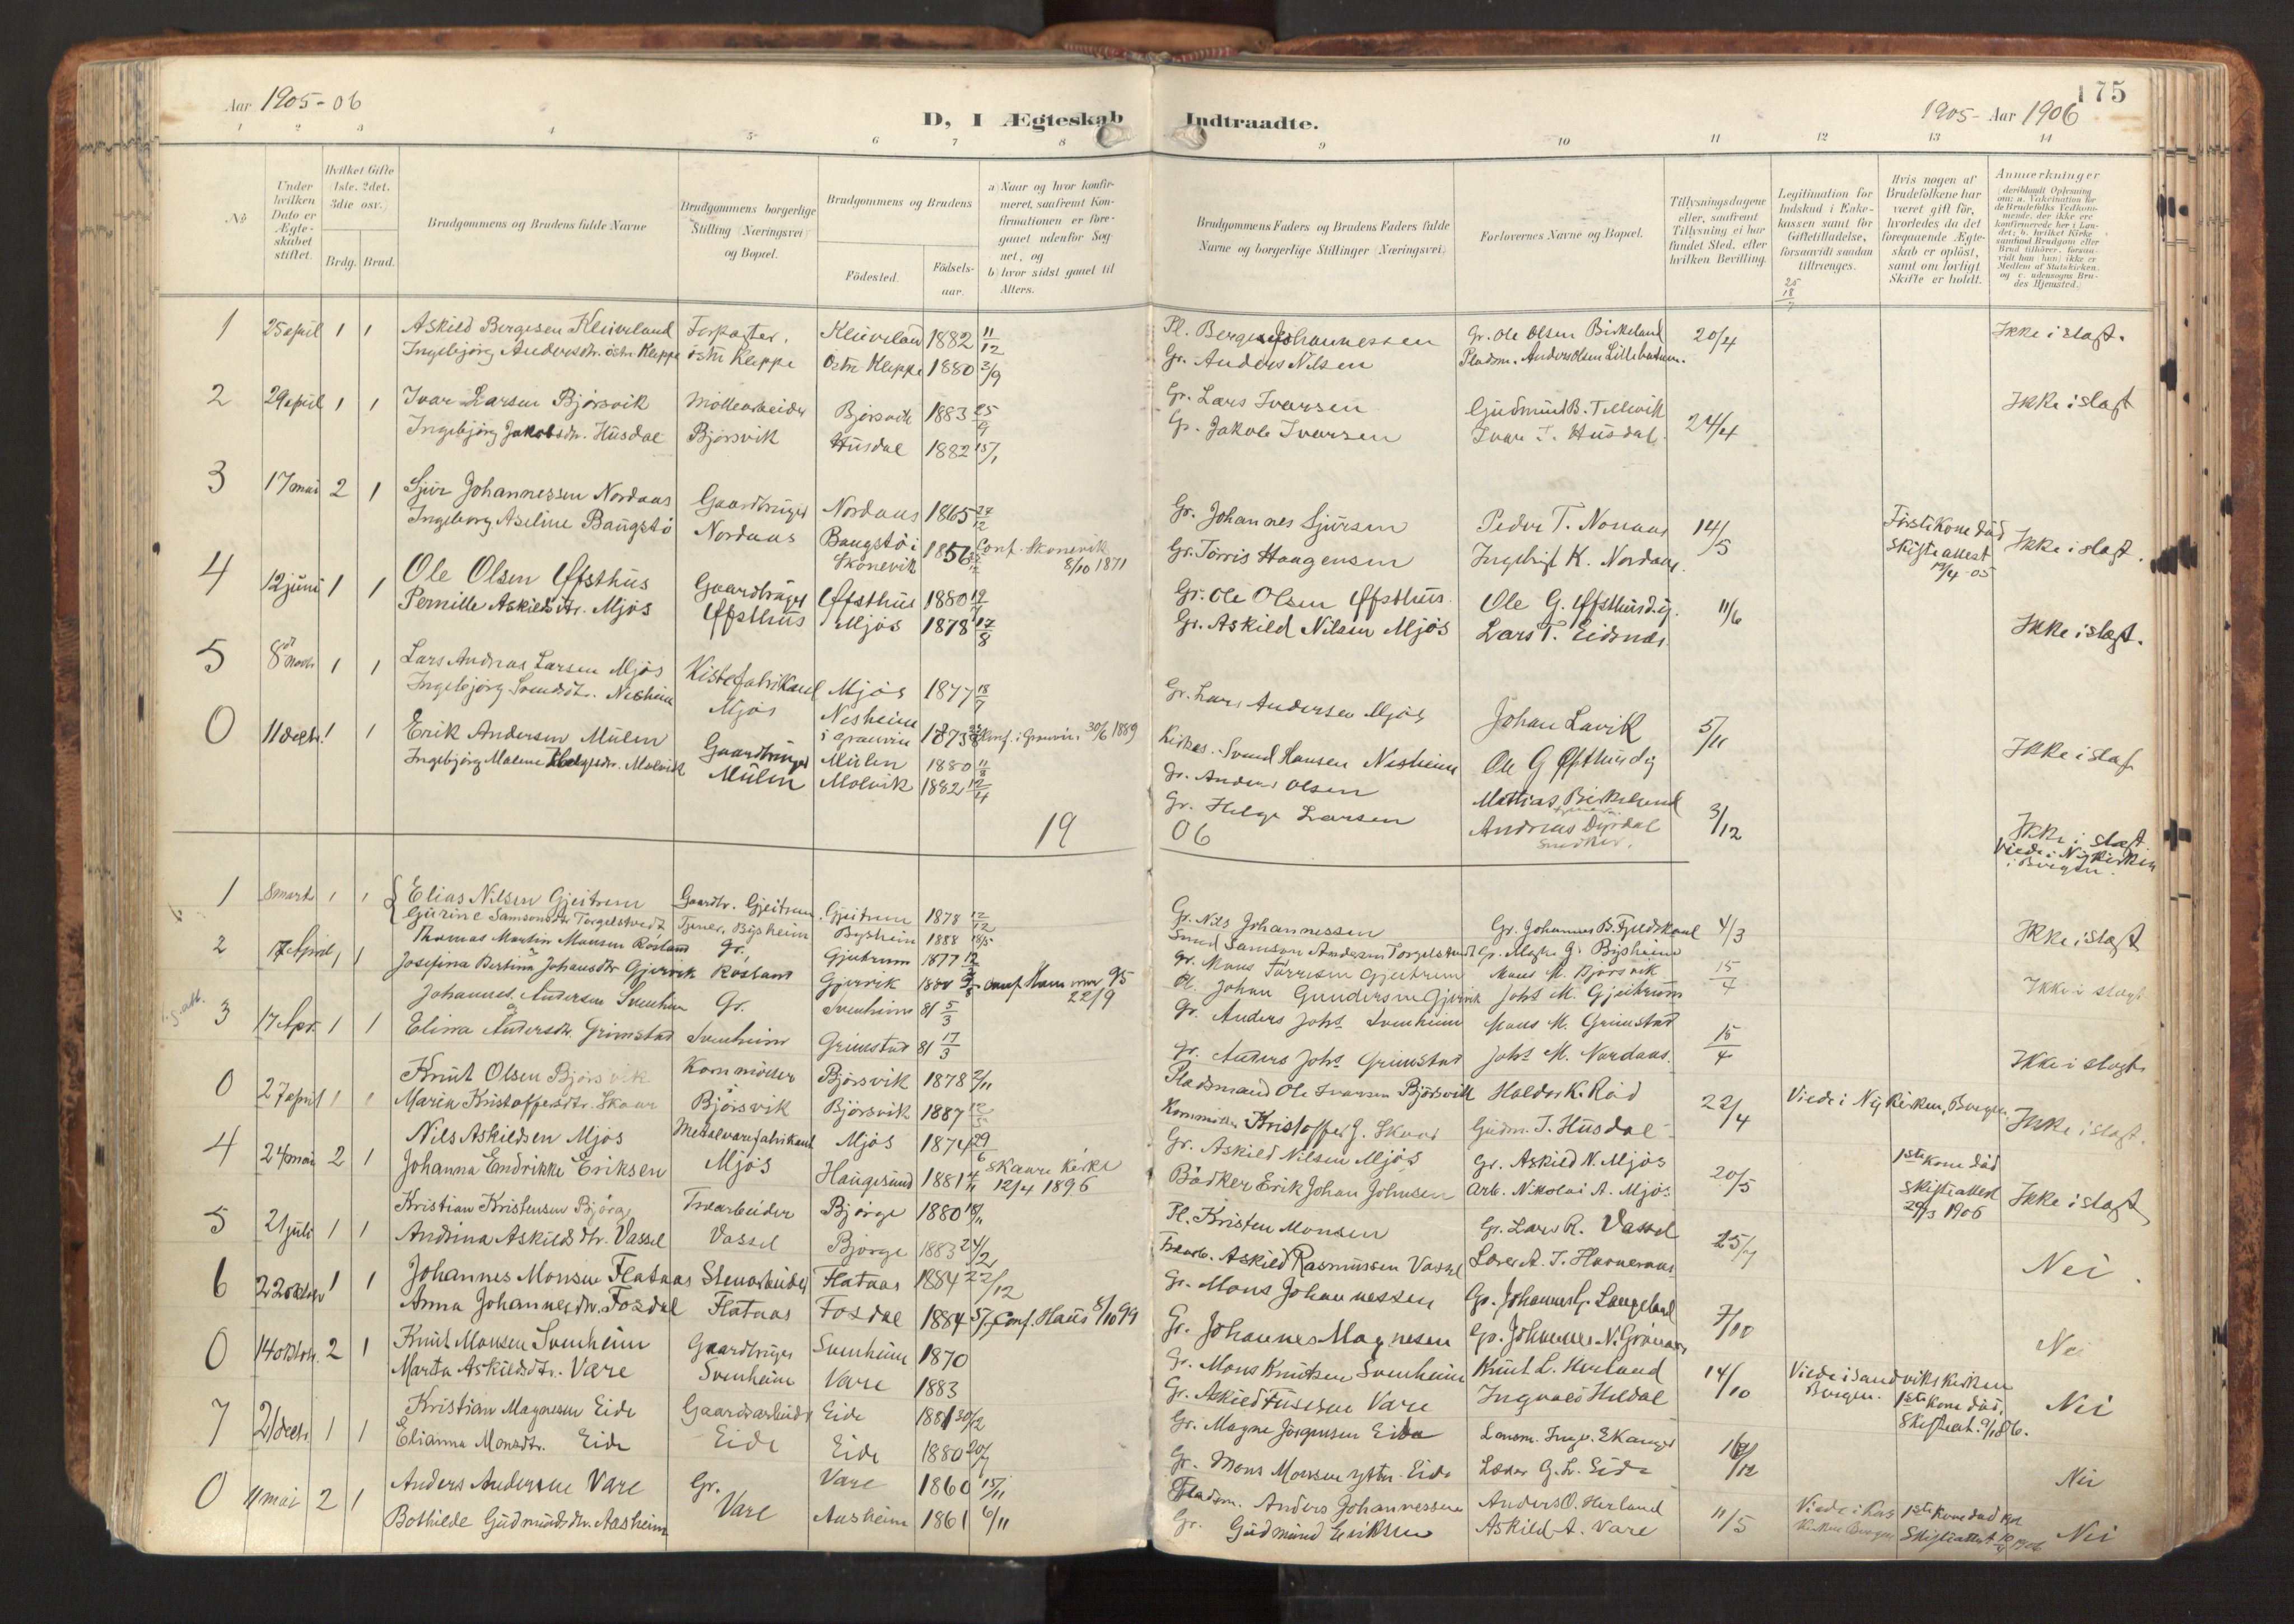 Aar 1905-06
D, I Ægteskab Indtraadte.
1905- Aar 1906
175
1 2 3 4 5 6 7 8 9 10 11 12 13 14
No
Under hvilken Dato er Ægteskabet stiftet.
Hvilket Gifte (1ste. 2det. 3die osv.)
Brdg. Brud.
Brudgommens og Brudens fulde Navne
Brudgommens borgerlige Stilling (Næringsvei) og Bopæl.
Brudgommens og Brudens
Fødested.
Fødsels-aar.
a) Naar og hvor konfirmeret, saafremt Konfirmationen er foregaaet udenfor Sognet, og
b) hvor sidst gaaet til Alters.
Brudgommens Faders og Brudens Faders fulde Navne og borgerlige Stillinger (Næringsvei)
Forlovernes Navne og Bopæl.
Tillysningsdagene eller, saafremt Tillysning ei har fundet Sted, efter hvilken Bevilling.
Legitimation for Indskud i Enkekassen samt for Giftetilladelse, forsaavidt saadan tiltrænges.
Hvis nogen af Brudefolkene har været gift før, hvorledes da det foregaaende Ægteskab er opløst, samt om lovligt Skifte er holdt.
Anmærkninger
1 25 april 1 1 Askild Bergesen Kleiveland Kleiveland 1882 11/12 Pl. Berge Johannessen Gr. Ole Olsen Birkeland 20/4 Ikke i slægt.
Ingebjørg Andersdtr. østre Kleppe østre Kleppe Østre Kleppe 1880 3/9 Gr. Anders Nilsen Pladsm. Anders Olsen
2 29 april 1 1 Ivar Larsen Bjørsvik Møllearbeider Bjørsvik 1883 25/9 Gr. Lars Ivarsen Gudmund B. Tellevik 24/4 Ikke i slægt
Ingebjørg Jakobsdtr. Husdal Bjørsvik Husdal 1882 15/1 Gr. Jakob Ivarsen Ivar I. Husdal
3 17 mai 2 1 Sjur Johannessen Nordaas Gaardbruger Nordaas 1865 27/12 Gr. Johannes Sjursen Peder T. Nonaas 14/5 Første Kone død Skifteattest 13/4-05 Ikke i slægt.
Ingeborg Aseline Baugstø Nordaas Baugstø i Skonevik 1856 Conf. Skonevik 8/10 1871 Gr. Torris Haagensen Ingebrigt K. Nordaas.
4 12 juni 1 1 Ole Olsen Øfsthus Gaardbruger Øfsthus 1880 Gr. Ole Olsen Øfsthus Ole G. Øfsthusdig. 11/6 Ikke i slægt.
Pernille Askildsdtr. Mjøs Øfsthus Mjøs 1878 17/8 Gr. Askild Nilsen Mjøs Lars T. Eidsnes.
5 8 1 1 Lars Andreas Larsen Mjøs Kistefabrikant Mjøs 1877 18/7 Gr. Lars Andersen Mjøs Johan Lavik 5/11 Ikke i slægt
Ingebjørg Svendsdtr. Nesheim Mjøs Nesheim i Granvin 1873 Conf. i Granvin 30/6 1889 Svend Hansen Nesheim Ole G Øfsthusdig
0 11 decbr. 1 1 Erik Andersen Mulen Gaardbruger Mulen 1880 11/8 Gr. Anders Olsen Mathias Birkelund 3/12 Ikke i slægt. Viede i Nykirken i Bergen.
Ingebjørg Malene Helgesdtr. Molvik Mulen Molvik 1882 12/4 Gr. Helge Larsen Andreas Dyrdal snedker.
19 06
1 8 marts 1 1 Elias Nilsen Gjeitrem Gaardbr. Gjeitrem Gjeitrem 1878 12/12 Gr. Nils Johannessen Gr. Johannes B. Fjeldskaal 4/3 Ikke i slægt
Gurine Samsonsdtr Torgelstvedt Tjener, Bysheim Bysheim 1888 18/5 Smed Samson Andersen Torgelstvedt Gr. G. Bysheim
2 17 April 1 1 Thomas Martin Monsen Røsland Gr. Gjeitrum 1877 Gr. Mons Torresen Gjeitrum Mons M. Bjørsvik 15/4 Ikke i slægt
Josefina Bertina Johansdtr Gjervik Røsland Gjervik Conf Hammer 95 22/9 Johan Gundersen Gjervik Johs M. Gjeitrum
3 17 Apr. 1 1 Johannes Andersen Svenheim Gr. Svenheim 81 5/3 Gr. Anders Johs Svenheim Mons M. Grimstad 15/4 Ikke i slægt
Elina Andersdtr Grimstad Svenheim Grimstad 81 17/3 Gr. Anders Johs Grimstad Johs M. Nordaas.
0 27 april 1 1 Knut Olsen Bjørsvik Kornmøller Bjørsvik 1878 2/11 Pladsmand Ole Ivarsen Bjørsvik Haldor K. Rød 22/4 Viede i Nykirken, Bergen. Ikke i slægt.
Maria Kristoffersdtr. Skaar Bjørsvik Bjørsvik 1887 Kornmøller Kristoffer J. Skaar Gudm. I. Husdal
4 24 mai 2 1 Nils Askildsen Mjøs Metalvarefabrikant Mjøs 1874 29/6 Gr. Askild Nilsen Mjøs Gr. Askild N. Mjøs 20/5 1ste kone død Skifteattest 29/3 1906 Ikke i slægt
Johanna Endrikke Eriksen Mjøs Haugesund 1881 Skaare Kirke 12/4 1896 Bødker Erik Johan Johnsen Arb. Nikolai A. Mjøs
5 21 juli 1 1 Kristian Kristensen Bjørge Træarbeider Bjørge 1880 18/11 Pl. Kristen Monsen Gr. Lars R. Vassel 25/7 Nei.
Andrina Askildsdtr. Vassel Vassel Bjørge 1883 24/2 Træarb. Askild Rasmussen Vassel Lærer A. I.
6 22 oktobr 1 1 Johannes Monsen Flataas Stenarbeider Flataas 1884 22/12 Gr. Mons Johannessen Gr. Johannes G. Langeland 7/10 Nei
Anna Johannesdtr. Fosdal Flataas Fosdal 1884 5/7 Conf. Haus 8/10 99 Gr. Johannes Magnesen Gr. Johannes N. Grønaas
0 14 oktobr. 2 1 Knut Monsen Svenheim Gaardbruger Svenheim 1870 Gr. Mons Knutsen Svenheim Knut L. Herland 14/10 Viede i Sandvikskirken Bergen. 1ste kone død. Skifteat. Nei
Marta Askildsdtr. Vare Svenheim Vare 1883 Gr. Askild Vare Ingvald Heldal
7 21 decbr. 1 1 Kristian Magnesen Eide Gaardsarbeider Eide 1881 30/12 Gr. Magne Jørgensen Eide Lensm. Ingv. Ekanger Nei
Elianna Monsdtr. Eide Eide Eide 1880 20/7 Gr. Mons Monsen ytre Eide Lærer G. L. Eide
0 11 mai 2 1 Anders Andersen Vare Gr. Vare 1860 15/11 Pladsm. Anders Johannessen Anders O. Herland 11/5 Viede i Kors Kirken Bergen 1ste kone død Skifteattest 1906 Nei
Bothilde Gudmundsdtr. Aasheim Vare Aasheim 1861 6/11 Gr. Gudmund Eriksen Askild A. Vare